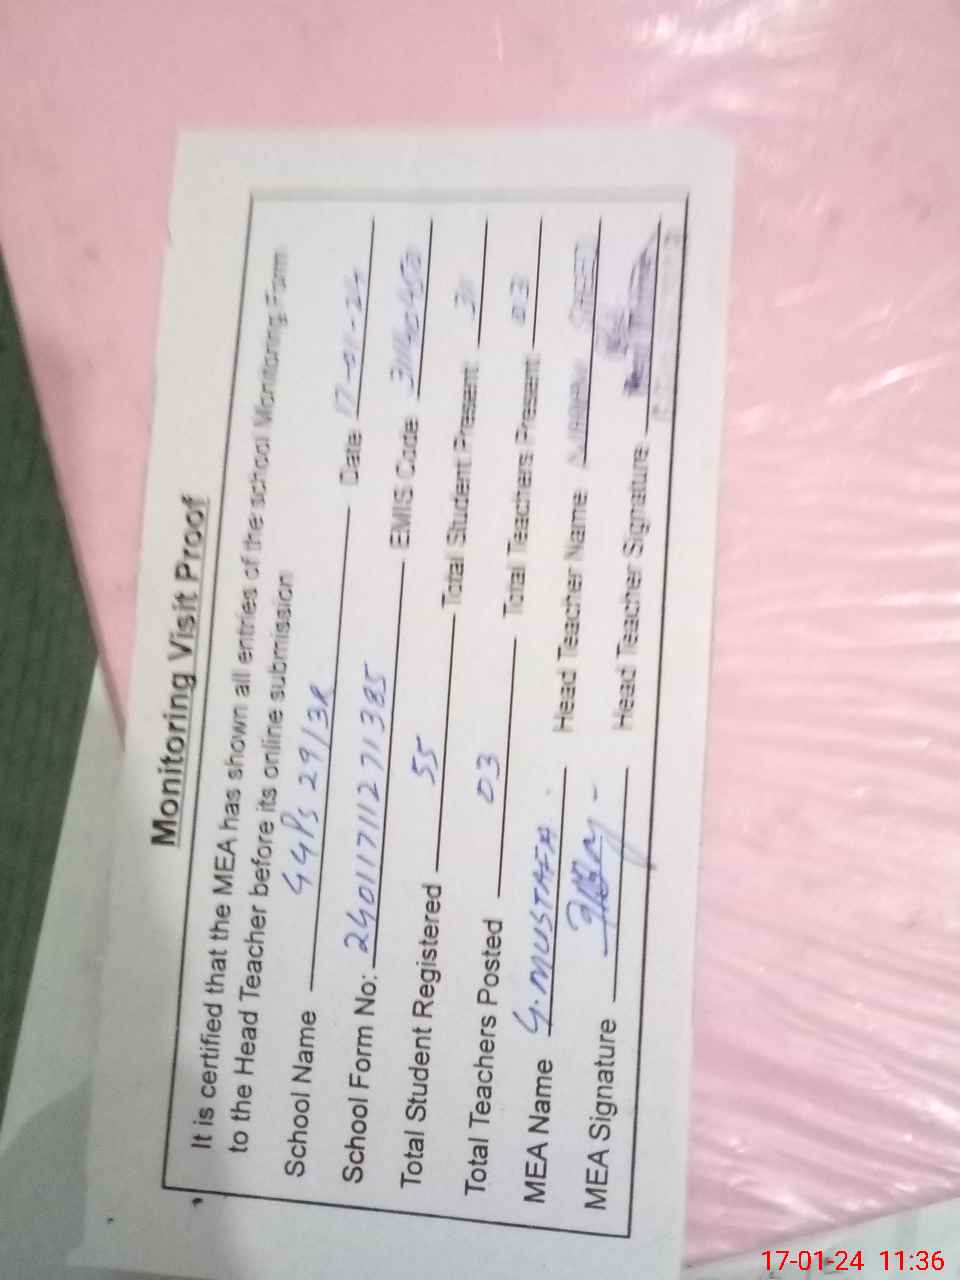 Monitoring Visit Proof
It is certified that the MEA has shown all entries of the school Monitoring Form
to the Head Teacher before its online submission
School Name GGPS 29/3R Date 17-01-24
School Form No: 240117111271385 EMIS Code
Total Student Registered 55 Total Student Present 31
Total Teachers Posted 03 Total Teachers Present 03
MEA Name G.MUSTAFA Head Teacher Name
MEA Signature Head Teacher Signature
17-01-24 11:36